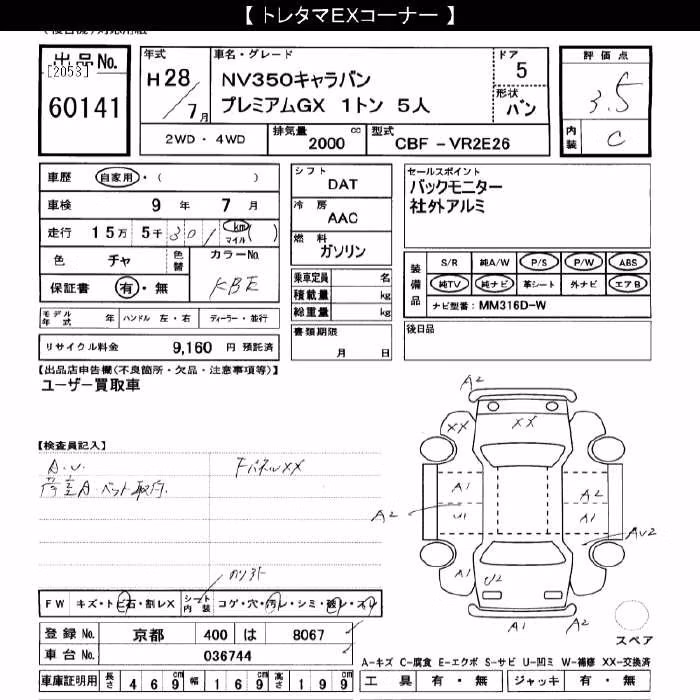 【 トレタマEXコーナー 】
出品No.
[2053]
60141
年式
H28/7月
車名・グレード
NV350キャラバン
プレミアムGX 1トン 5人
ドア
5
形状
バン
2WD・4WD
排気量 2000 cc
型式 CBF-VR2E26
評価点
3.5
内装 C
車歴 自家用・( )
車検 9年 7月
走行 15万 5千 301 km マイル ( )
色 チャ 色替 カラーNo.
保証書 有・無 KBE
モデル年式 年 ハンドル 左・右 ディーラー・並行
リサイクル料金 9,160 円 預託済
シフト
DAT
冷房
AAC
燃料
ガソリン
乗車定員 名
積載量 kg
総重量 kg
書類期限
月 日
セールスポイント
バックモニター
社外アルミ
装備品
S/R 純A/W P/S P/W ABS
純TV 純ナビ 革シート 外ナビ エアB
ナビ型番: MM316D-W
後日品
【出品店申告欄(不良箇所・欠品・注意事項等)】
ユーザー買取車
【検査員記入】
A.U.
FパネルXX
荷室A ベット取付.
FW キズ・トビ石・割レX シート内装 コゲ・穴・汚レ・シミ・破レ・スレ
登録No. 京都 400 は 8067
車台No. 036744
車庫証明用 長さ 469cm 幅 169cm 高さ 199cm
A2
XX
XX
A1
A2
U1
A1
A2
AU2
A1
U2
A1
A2
スペア
A-キズ C-腐食 E-エクボ S-サビ U-凹ミ W-補修 XX-交換済
工具 有・無 ジャッキ 有・無